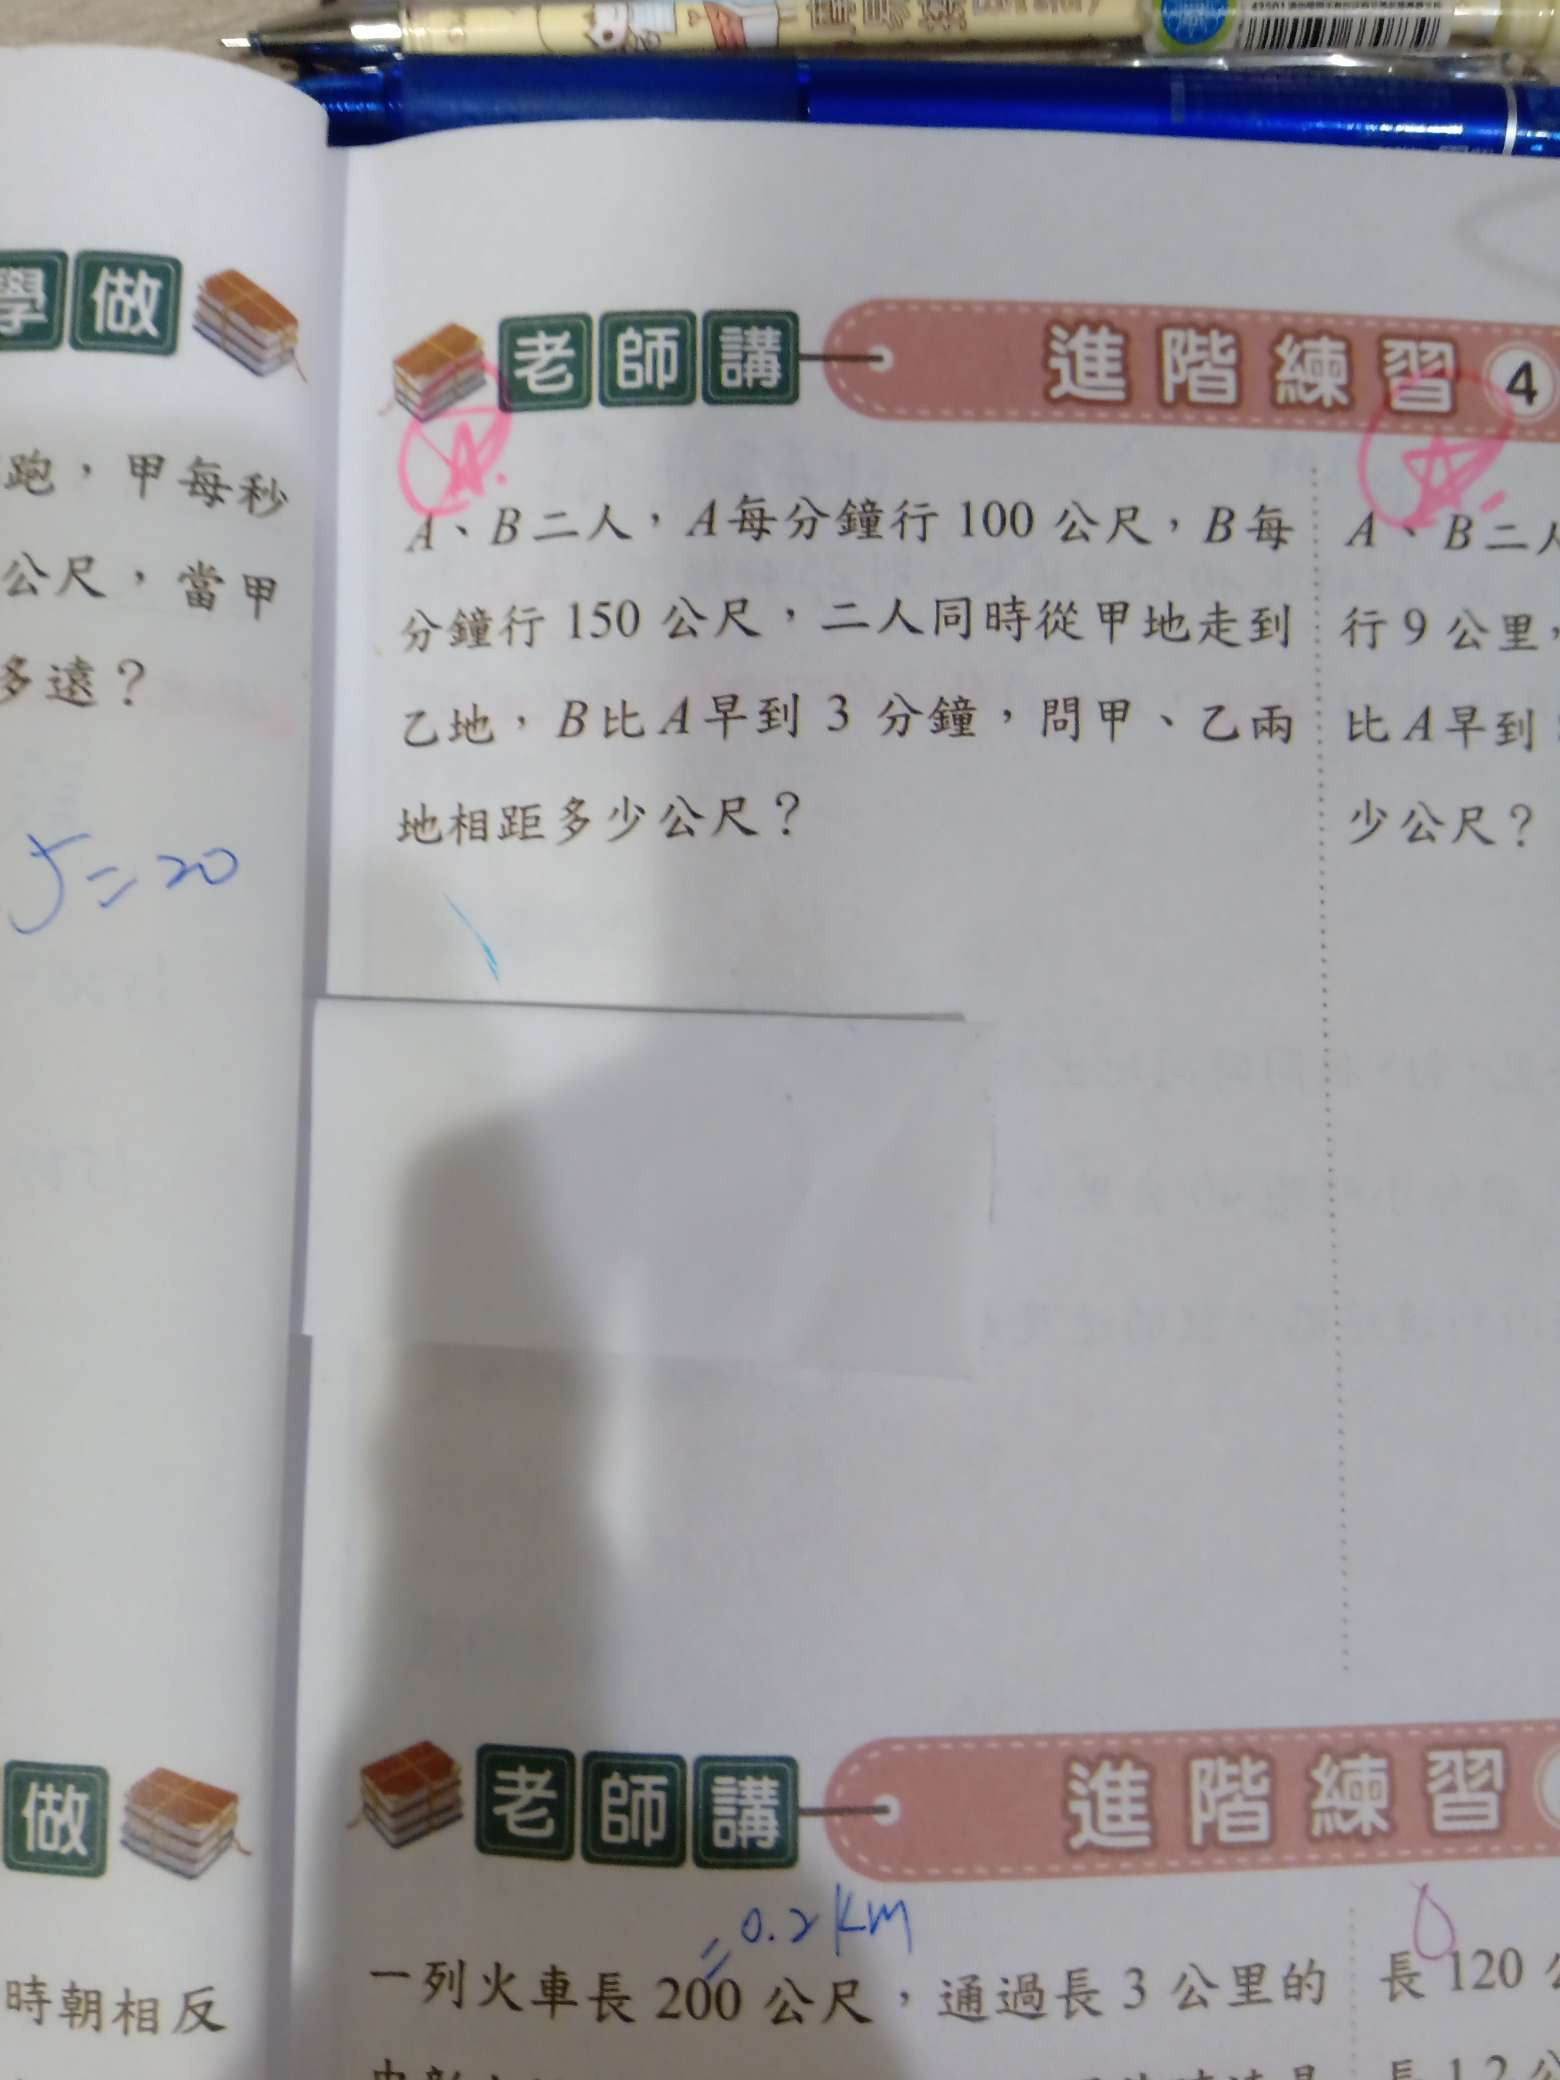 學做
跑，甲每秒
公尺，當甲
多遠？
5=20
老師講 進階練習 4
A、B二人，A每分鐘行 100 公尺，B每
分鐘行 150 公尺，二人同時從甲地走到
乙地，B比A早到 3 分鐘，問甲、乙兩
地相距多少公尺？
A、B二人
行 9 公里，
比A早到
少公尺？
做
時朝相反
老師講 進階練習
=0.2km
一列火車長 200 公尺，通過長 3 公里的
長 120 公
長 1.2 公